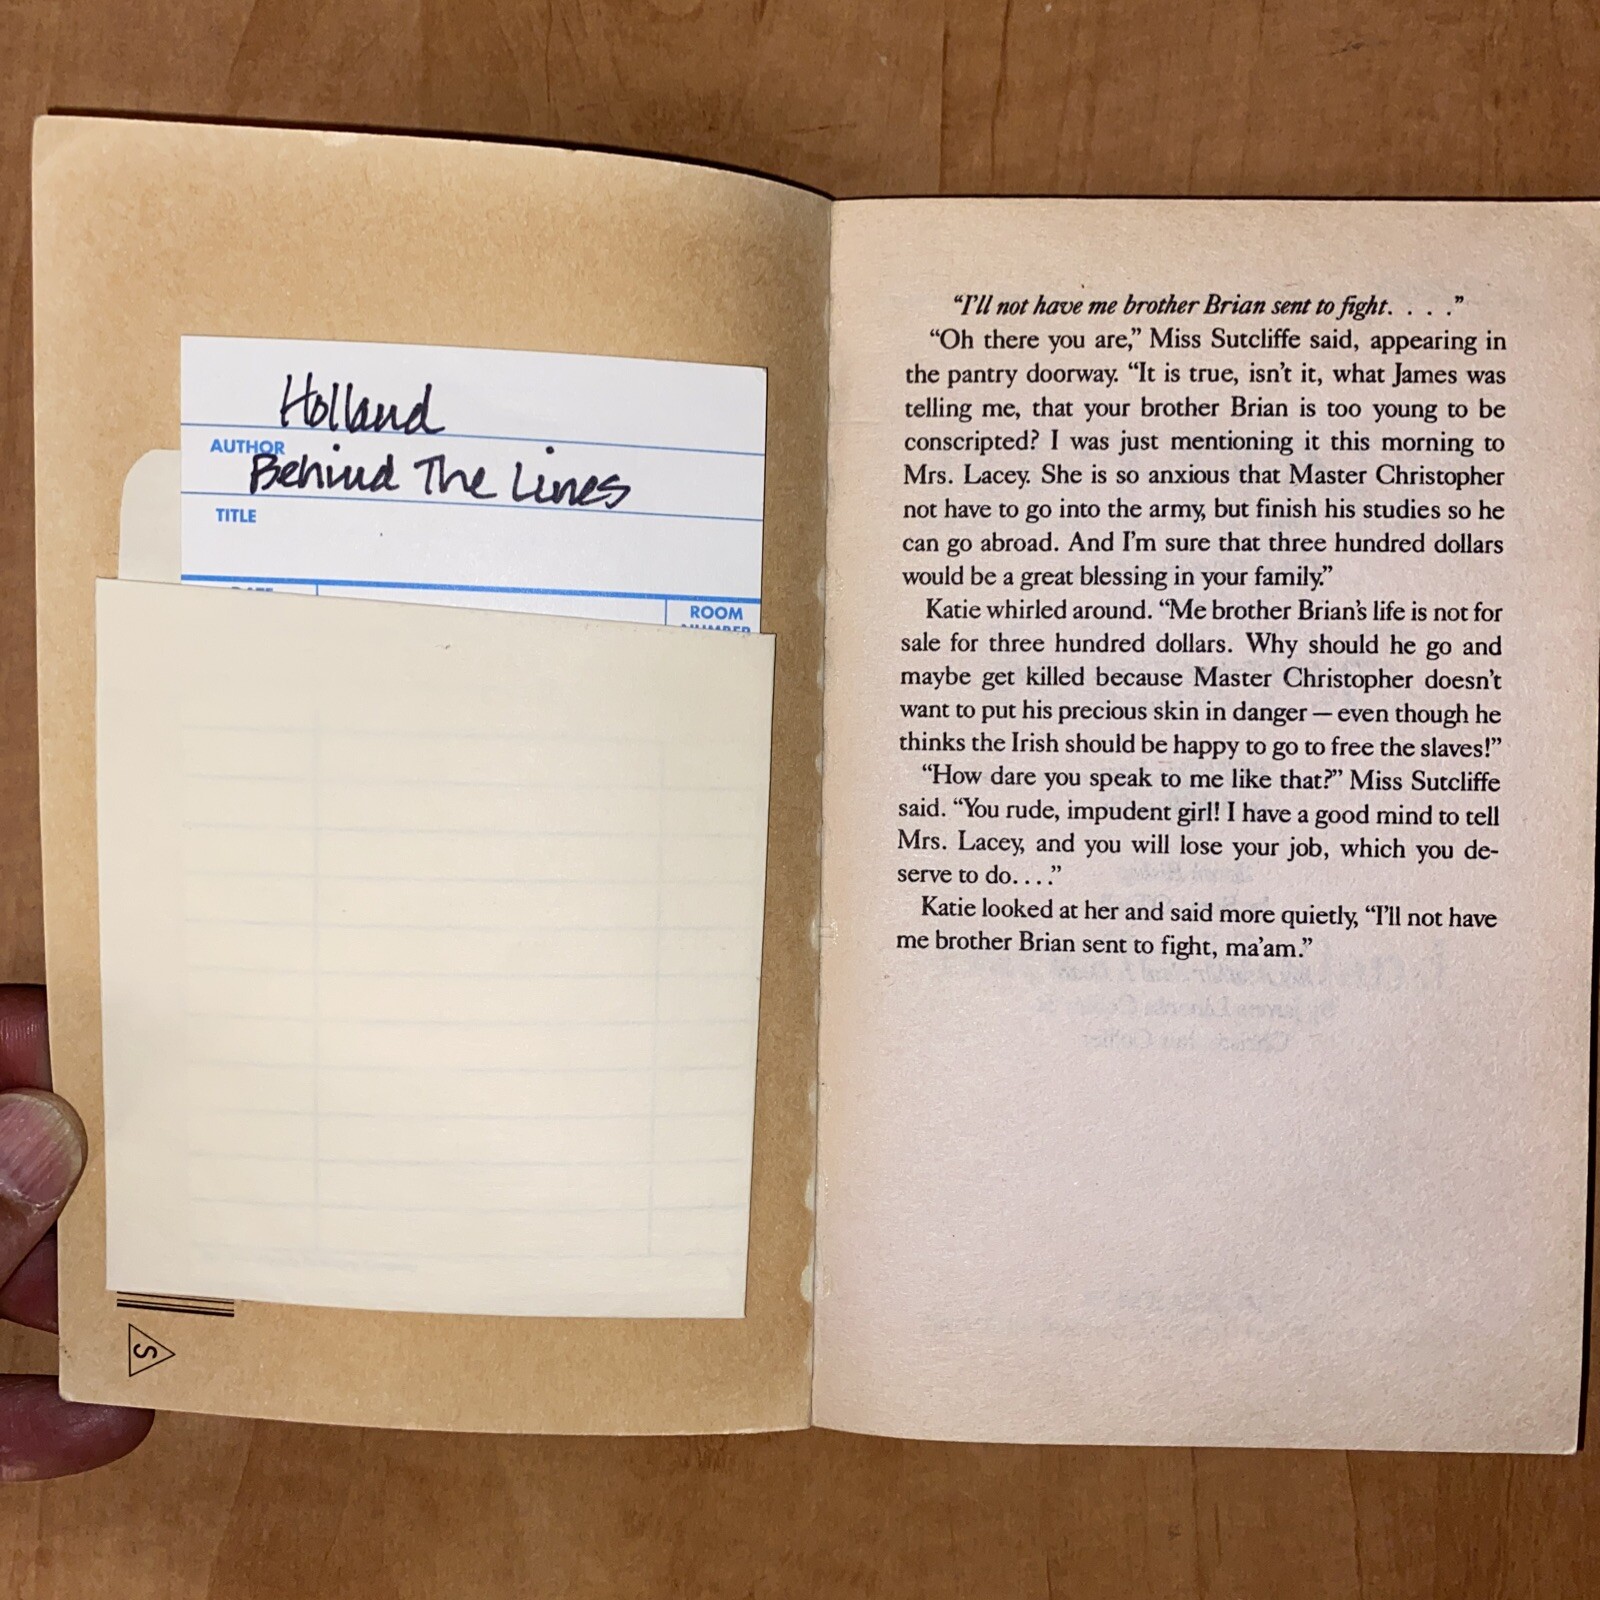 Holland
AUTHOR
Behind The Lines
TITLE
DATE
ROOM
NUMBER
S
“I’ll not have me brother Brian sent to fight. . . .”
“Oh there you are,” Miss Sutcliffe said, appearing in
the pantry doorway. “It is true, isn’t it, what James was
telling me, that your brother Brian is too young to be
conscripted? I was just mentioning it this morning to
Mrs. Lacey. She is so anxious that Master Christopher
not have to go into the army, but finish his studies so he
can go abroad. And I’m sure that three hundred dollars
would be a great blessing in your family.”
Katie whirled around. “Me brother Brian’s life is not for
sale for three hundred dollars. Why should he go and
maybe get killed because Master Christopher doesn’t
want to put his precious skin in danger — even though he
thinks the Irish should be happy to go to free the slaves!”
“How dare you speak to me like that?” Miss Sutcliffe
said. “You rude, impudent girl! I have a good mind to tell
Mrs. Lacey, and you will lose your job, which you de-
serve to do. . . .”
Katie looked at her and said more quietly, “I’ll not have
me brother Brian sent to fight, ma’am.”